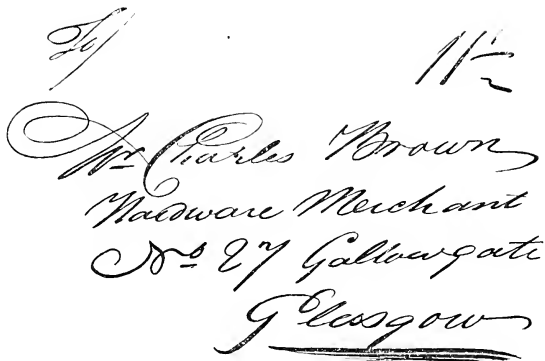 To
Mr Charles Brown
Hardware Merchant
No 27 Gallowgate
Glasgow